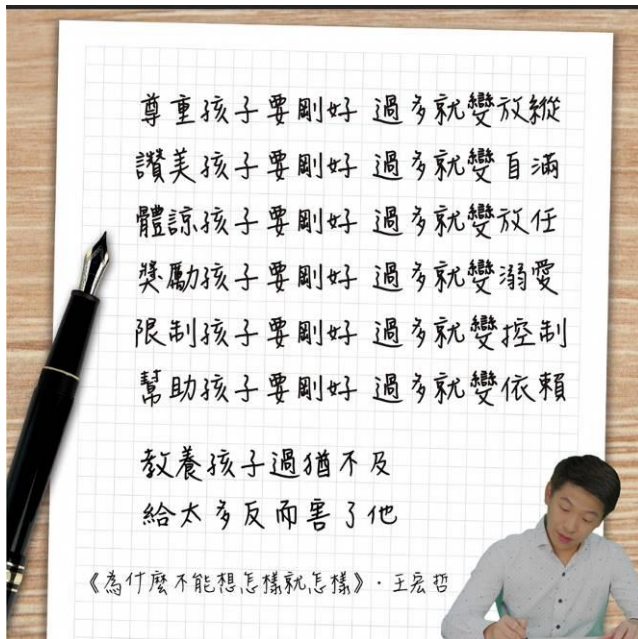 尊重孩子要剛好 過多就變放縱
讚美孩子要剛好 過多就變自滿
體諒孩子要剛好 過多就變放任
獎勵孩子要剛好 過多就變溺愛
限制孩子要剛好 過多就變控制
幫助孩子要剛好 過多就變依賴
教養孩子過猶不及
給太多反而害了他
《為什麼不能想怎樣就怎樣》·王宏哲